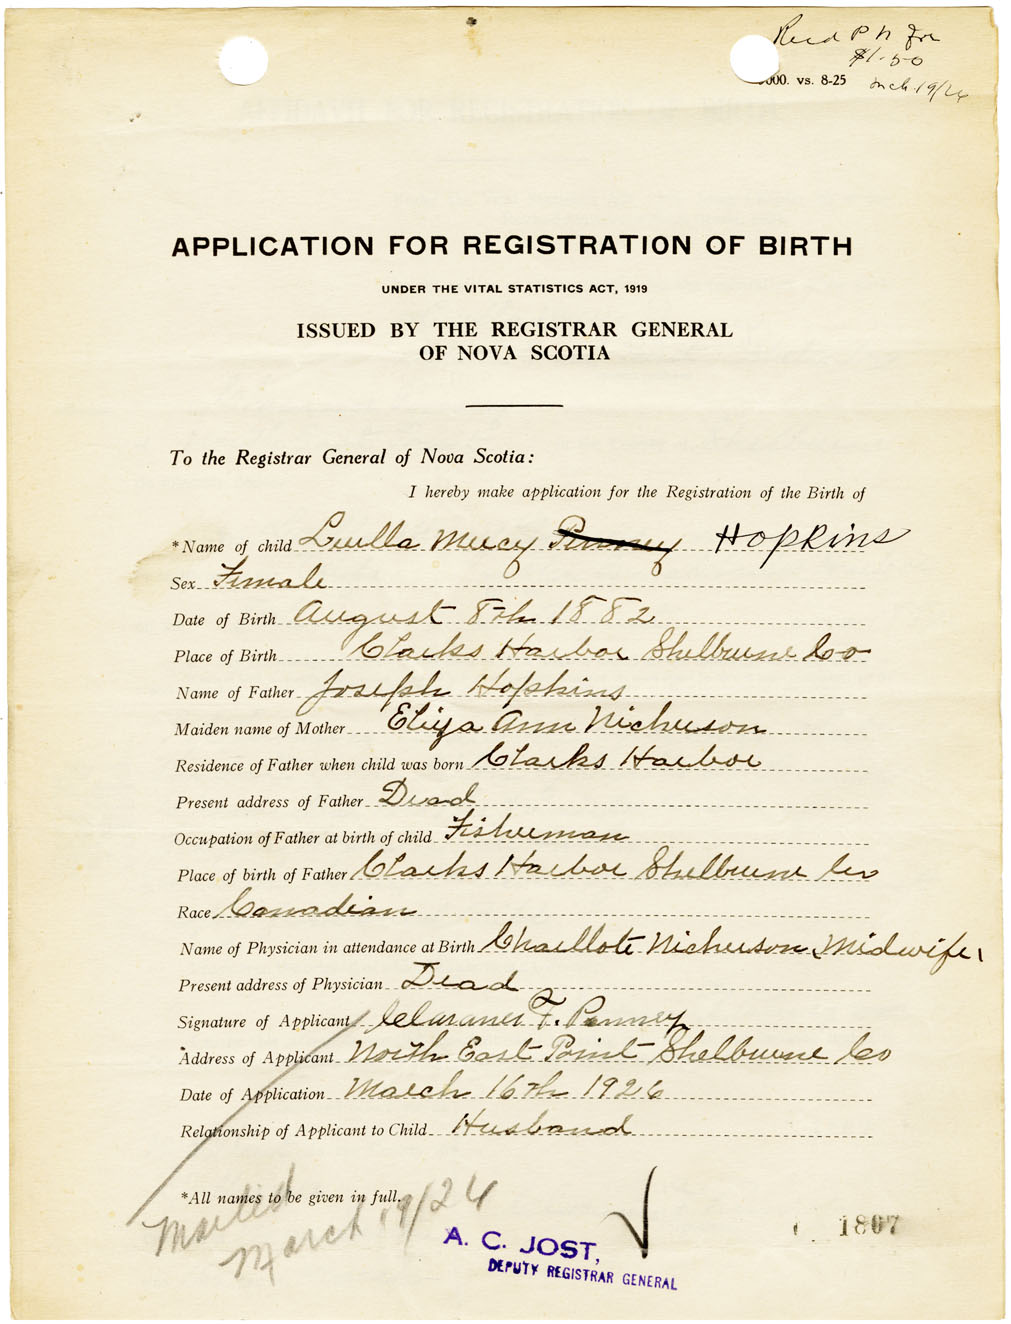 Recd P N for
$1.50
000. vs. 8-25
mch 19/26
APPLICATION FOR REGISTRATION OF BIRTH
UNDER THE VITAL STATISTICS ACT, 1919
ISSUED BY THE REGISTRAR GENERAL
OF NOVA SCOTIA
To the Registrar General of Nova Scotia:
I hereby make application for the Registration of the Birth of
*Name of child Luella Mercy Penney Hopkins
Sex Female
Date of Birth August 8th 1882
Place of Birth Clarks Harbor Shelburne Co
Name of Father Joseph Hopkins
Maiden name of Mother Eliza Ann Nickerson
Residence of Father when child was born Clarks Harbor
Present address of Father Dead
Occupation of Father at birth of child Fisherman
Place of birth of Father Clarks Harbor Shelburne Co
Race Canadian
Name of Physician in attendance at Birth Charllote Nickerson, Midwife,
Present address of Physician Dead
Signature of Applicant F. Penney
Address of Applicant North East Point Shelburne Co
Date of Application March 16th 1926
Relationship of Applicant to Child Husband
*All names to be given in full.
Mailed
March 19/26
A. C. JOST,
DEPUTY REGISTRAR GENERAL
1807